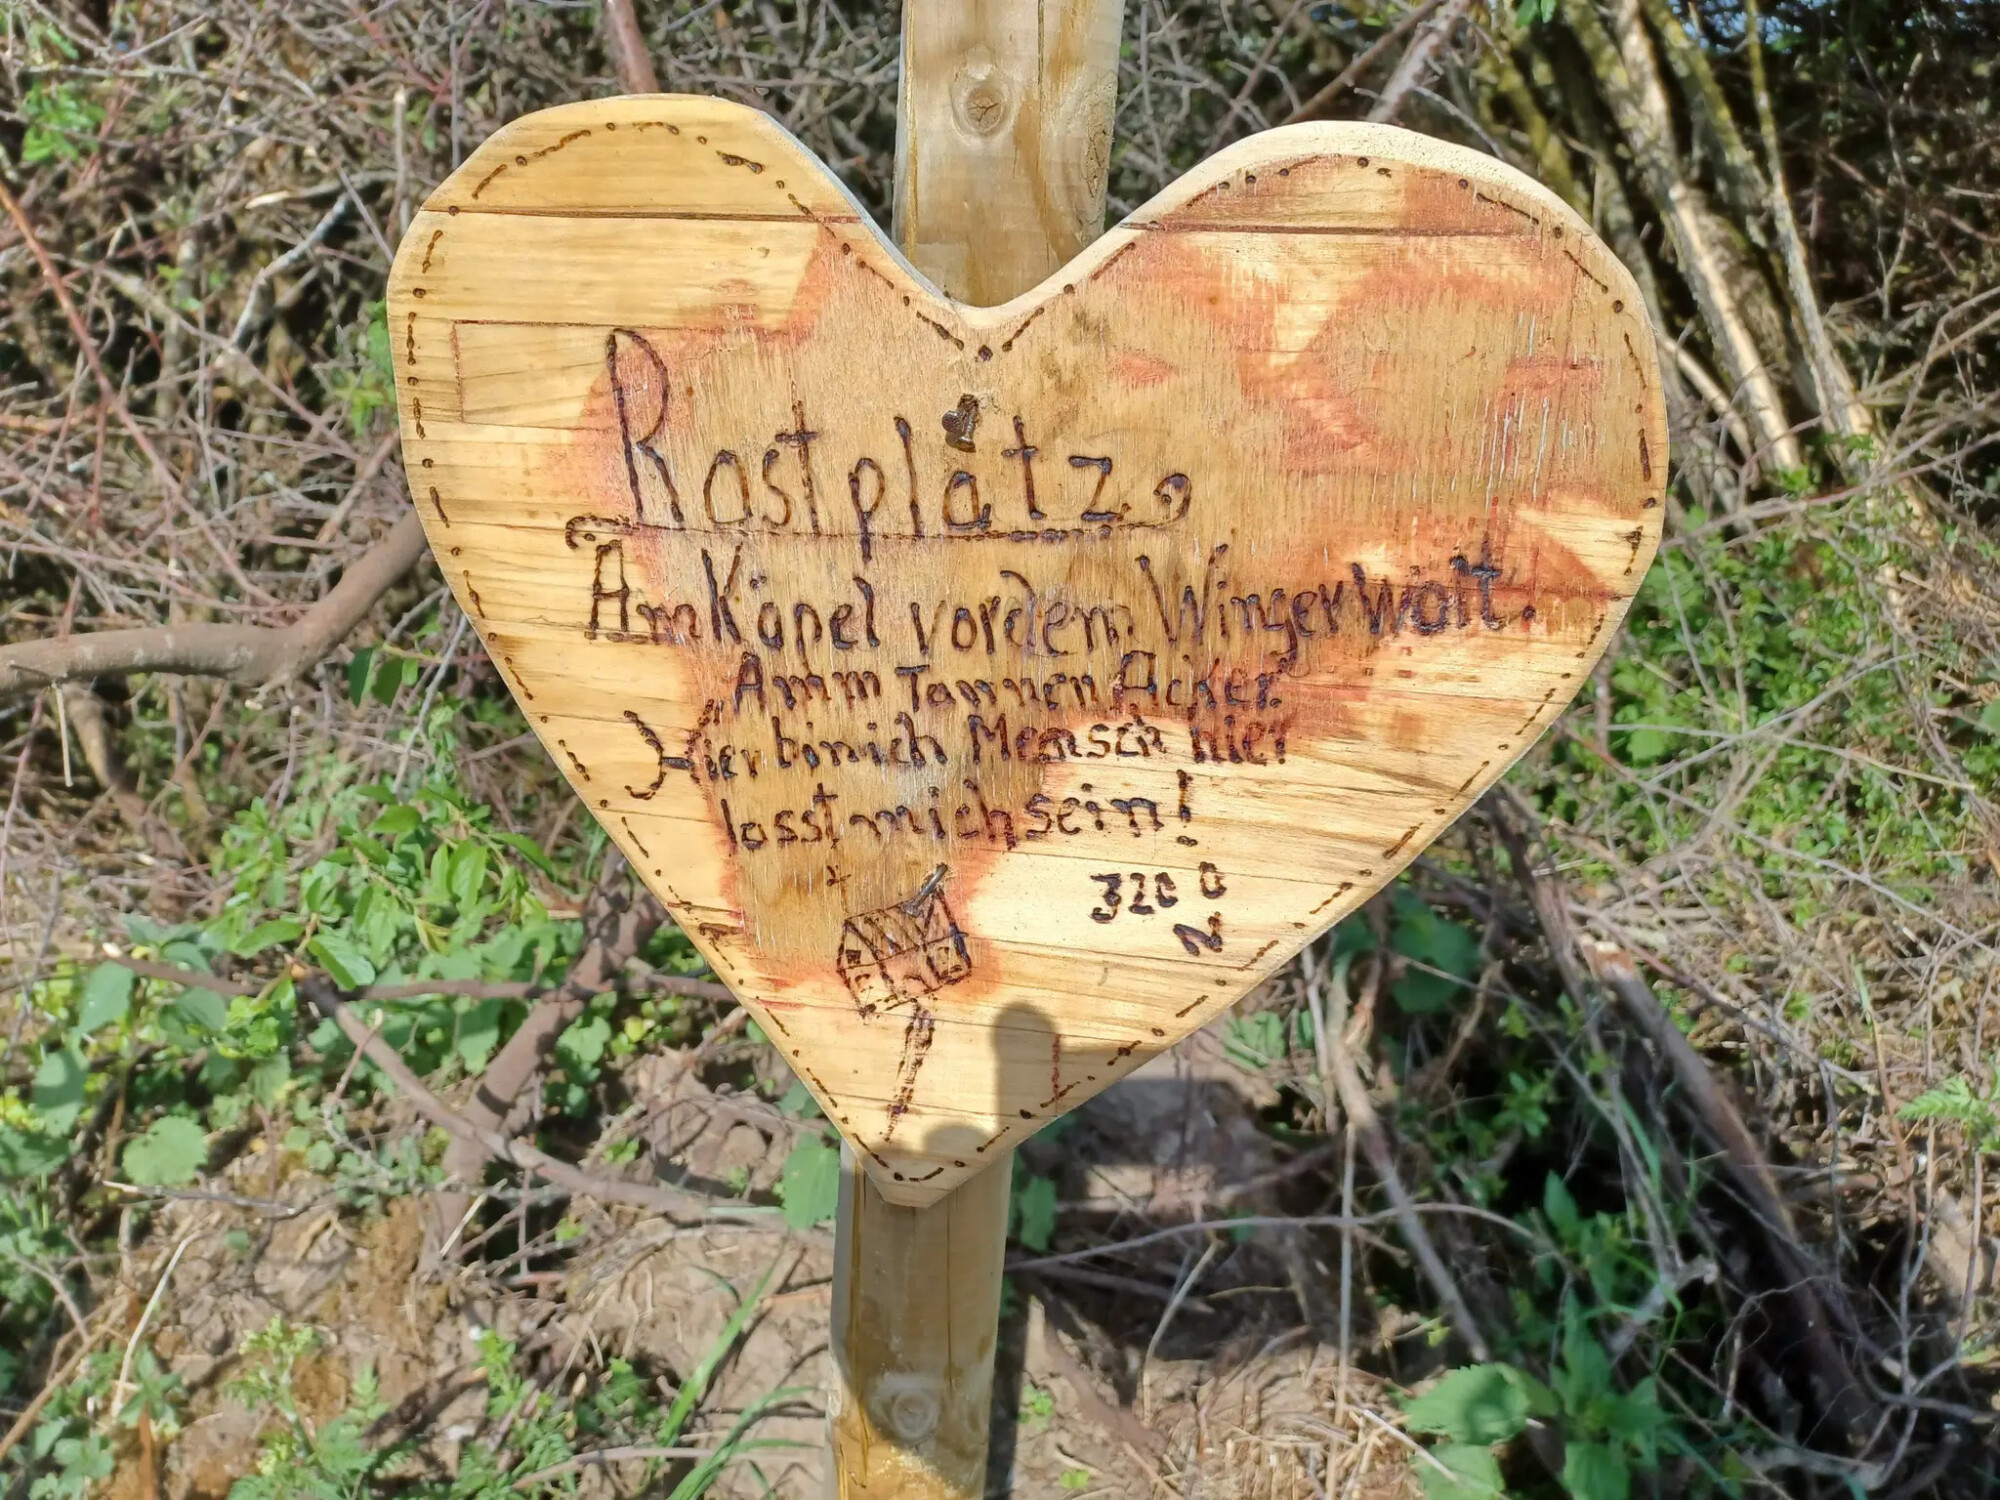 Rastplatz
Am Käpel vor dem Wingerwält.
Amm Tannen Acker
Hier bin ich Mensch hier
lasst mich sein!
320 0
N